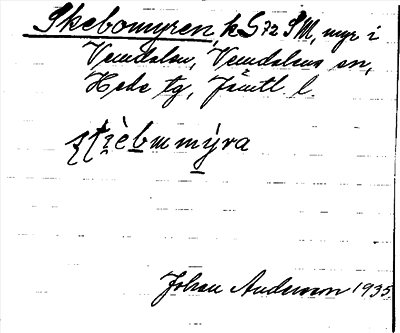 Skebomyren, k S72 SM, myr i
Vemdalen, Vemdalens sn,
Hede tg, Jämtl. l.
ʂtʂèbm mýra
Johan Anderson 1935